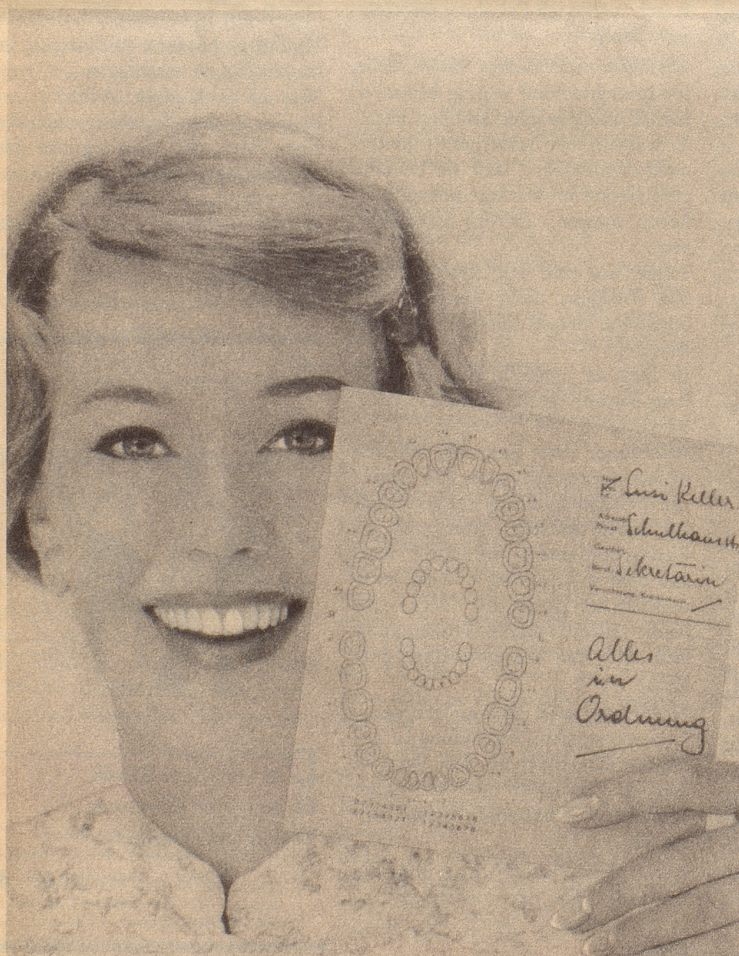 Susi Keller
Schulhausstr
Sekretärin
Alles
in
Ordnung
87654321 12345678
87654321 12345678